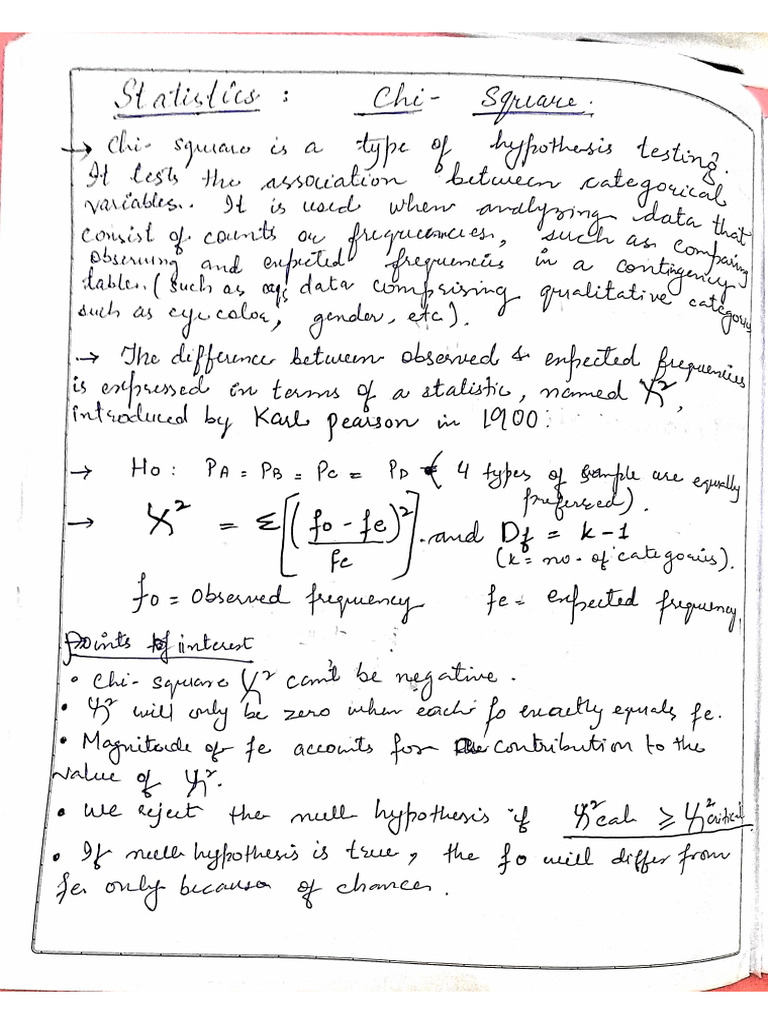 Statistics : Chi- Square.
→ Chi- square is a type of hypothesis testing.
It tests the association between categorical
variables. It is used when analyzing data that
consist of counts or frequencies, such as comparing
observing and expected frequencies in a contingency
table. (Such as data comprising qualitative category
such as eye color, gender, etc).
→ The difference between observed & expected frequencies
is expressed in terms of a statistic, named χ²,
introduced by Karl pearson in 1900:
→ Ho: PA = PB = PC = PD ( 4 types of sample are equally
preferred).
→ χ² = Σ[(fo - fe)²/fe]. and Df = k-1
(k = no. of categories).
fo = Observed frequency fe = expected frequency.
Points of interest
• Chi- square χ² can't be negative.
• χ² will only be zero when each fo exactly equals fe.
• Magnitude of fe accounts for contribution to the
value of χ².
• We reject the null hypothesis if χ²cal ≥ χ²critical
• If null hypothesis is true, the fo will differ from
fe only because of chances.